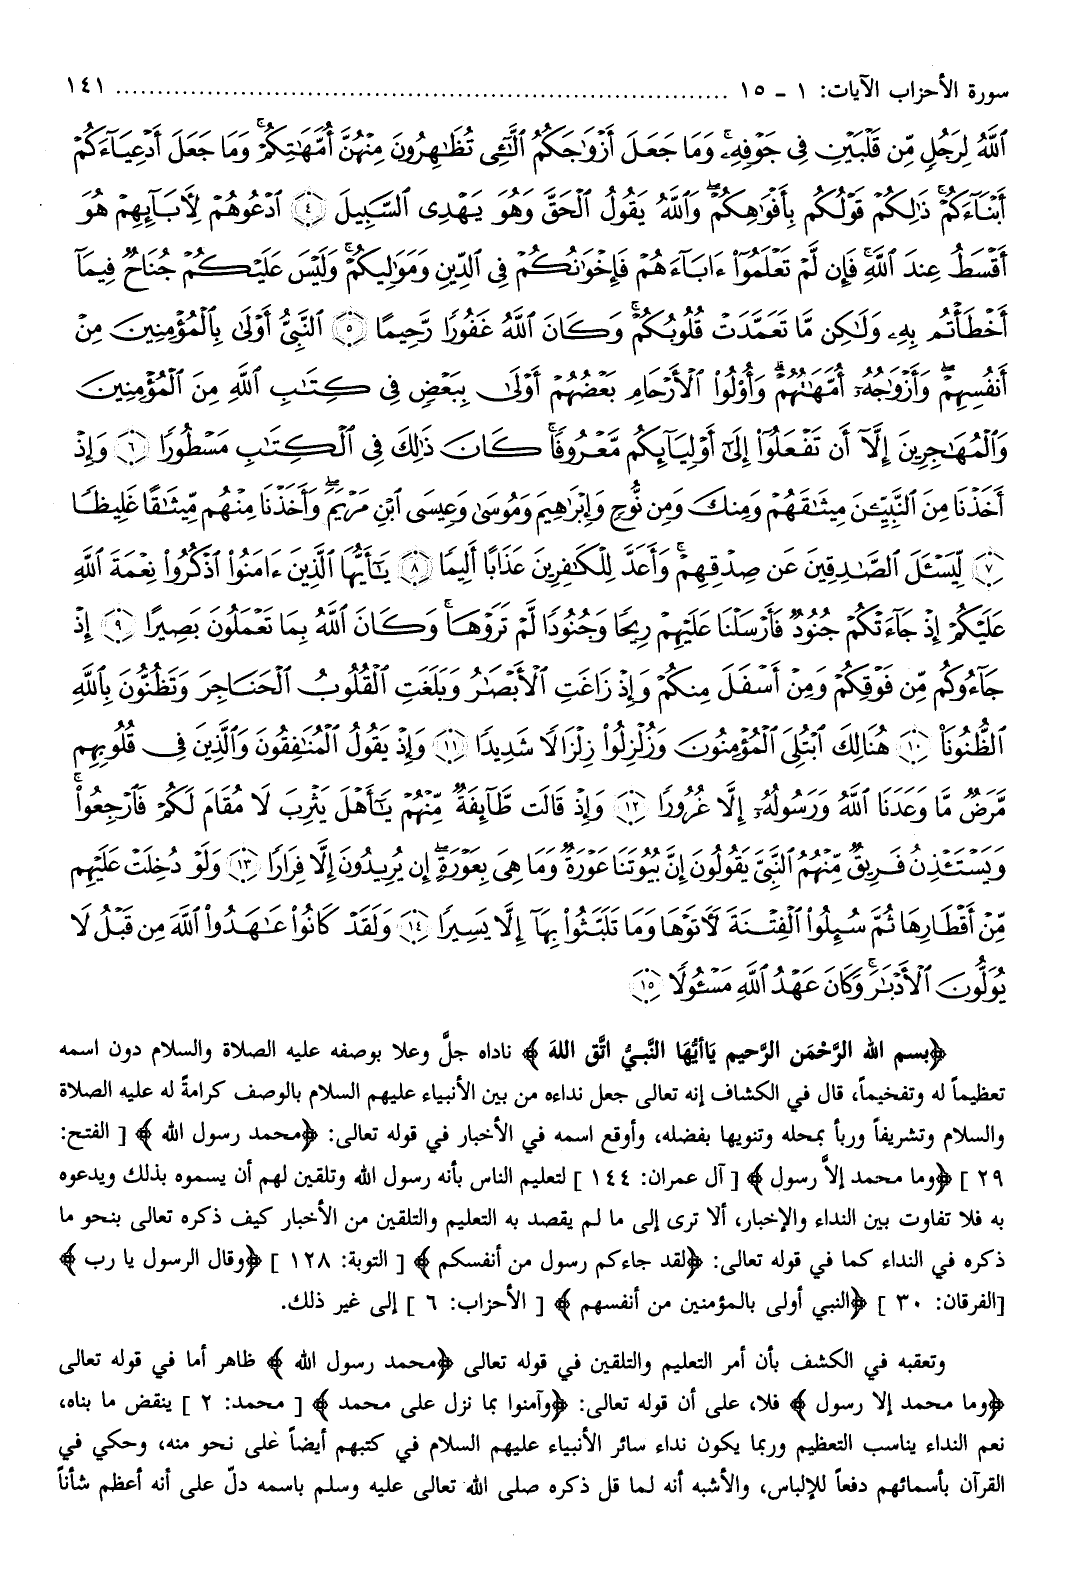 سورة الأحزاب الآيات: ١ ـ ١٥ ........................................................................ ١٤١
ٱللَّهُ لِرَجُلٍ مِّن قَلْبَيْنِ فِي جَوْفِهِۦۚ وَمَا جَعَلَ أَزْوَٰجَكُمُ ٱلَّٰٓـِٔي تُظَٰهِرُونَ مِنْهُنَّ أُمَّهَٰتِكُمْۚ وَمَا جَعَلَ أَدْعِيَآءَكُمْ
أَبْنَآءَكُمْۚ ذَٰلِكُمْ قَوْلُكُم بِأَفْوَٰهِكُمْۖ وَٱللَّهُ يَقُولُ ٱلْحَقَّ وَهُوَ يَهْدِي ٱلسَّبِيلَ ﴿٤﴾ ٱدْعُوهُمْ لِأَبَآئِهِمْ هُوَ
أَقْسَطُ عِندَ ٱللَّهِۚ فَإِن لَّمْ تَعْلَمُوٓا۟ ءَابَآءَهُمْ فَإِخْوَٰنُكُمْ فِي ٱلدِّينِ وَمَوَٰلِيكُمْۚ وَلَيْسَ عَلَيْكُمْ جُنَاحٌ فِيمَآ
أَخْطَأْتُم بِهِۦ وَلَٰكِن مَّا تَعَمَّدَتْ قُلُوبُكُمْۚ وَكَانَ ٱللَّهُ غَفُورًا رَّحِيمًا ﴿٥﴾ ٱلنَّبِيُّ أَوْلَىٰ بِٱلْمُؤْمِنِينَ مِنْ
أَنفُسِهِمْۖ وَأَزْوَٰجُهُۥٓ أُمَّهَٰتُهُمْۗ وَأُو۟لُوا۟ ٱلْأَرْحَامِ بَعْضُهُمْ أَوْلَىٰ بِبَعْضٍ فِي كِتَٰبِ ٱللَّهِ مِنَ ٱلْمُؤْمِنِينَ
وَٱلْمُهَٰجِرِينَ إِلَّآ أَن تَفْعَلُوٓا۟ إِلَىٰٓ أَوْلِيَآئِكُم مَّعْرُوفًاۚ كَانَ ذَٰلِكَ فِي ٱلْكِتَٰبِ مَسْطُورًا ﴿٦﴾ وَإِذْ
أَخَذْنَا مِنَ ٱلنَّبِيِّـۧنَ مِيثَٰقَهُمْ وَمِنكَ وَمِن نُّوحٍ وَإِبْرَٰهِيمَ وَمُوسَىٰ وَعِيسَى ٱبْنِ مَرْيَمَۖ وَأَخَذْنَا مِنْهُم مِّيثَٰقًا غَلِيظًا
﴿٧﴾ لِّيَسْـَٔلَ ٱلصَّٰدِقِينَ عَن صِدْقِهِمْۚ وَأَعَدَّ لِلْكَٰفِرِينَ عَذَابًا أَلِيمًا ﴿٨﴾ يَٰٓأَيُّهَا ٱلَّذِينَ ءَامَنُوا۟ ٱذْكُرُوا۟ نِعْمَةَ ٱللَّهِ
عَلَيْكُمْ إِذْ جَآءَتْكُمْ جُنُودٌ فَأَرْسَلْنَا عَلَيْهِمْ رِيحًا وَجُنُودًا لَّمْ تَرَوْهَاۚ وَكَانَ ٱللَّهُ بِمَا تَعْمَلُونَ بَصِيرًا ﴿٩﴾ إِذْ
جَآءُوكُم مِّن فَوْقِكُمْ وَمِنْ أَسْفَلَ مِنكُمْ وَإِذْ زَاغَتِ ٱلْأَبْصَٰرُ وَبَلَغَتِ ٱلْقُلُوبُ ٱلْحَنَاجِرَ وَتَظُنُّونَ بِٱللَّهِ
ٱلظُّنُونَا۠ ﴿١٠﴾ هُنَالِكَ ٱبْتُلِيَ ٱلْمُؤْمِنُونَ وَزُلْزِلُوا۟ زِلْزَالًا شَدِيدًا ﴿١١﴾ وَإِذْ يَقُولُ ٱلْمُنَٰفِقُونَ وَٱلَّذِينَ فِي قُلُوبِهِم
مَّرَضٌ مَّا وَعَدَنَا ٱللَّهُ وَرَسُولُهُۥٓ إِلَّا غُرُورًا ﴿١٢﴾ وَإِذْ قَالَت طَّآئِفَةٌ مِّنْهُمْ يَٰٓأَهْلَ يَثْرِبَ لَا مُقَامَ لَكُمْ فَٱرْجِعُوا۟ۚ
وَيَسْتَـْٔذِنُ فَرِيقٌ مِّنْهُمُ ٱلنَّبِيَّ يَقُولُونَ إِنَّ بُيُوتَنَا عَوْرَةٌ وَمَا هِيَ بِعَوْرَةٍۖ إِن يُرِيدُونَ إِلَّا فِرَارًا ﴿١٣﴾ وَلَوْ دُخِلَتْ عَلَيْهِم
مِّنْ أَقْطَارِهَا ثُمَّ سُئِلُوا۟ ٱلْفِتْنَةَ لَأَتَوْهَا وَمَا تَلَبَّثُوا۟ بِهَآ إِلَّا يَسِيرًا ﴿١٤﴾ وَلَقَدْ كَانُوا۟ عَٰهَدُوا۟ ٱللَّهَ مِن قَبْلُ لَا
يُوَلُّونَ ٱلْأَدْبَٰرَۚ وَكَانَ عَهْدُ ٱللَّهِ مَسْـُٔولًا ﴿١٥﴾
﴿بسم الله الرَّحْمَن الرَّحيم يَاأَيُّهَا النَّبيُّ اتَّق اللهَ﴾ ناداه جلَّ وعلا بوصفه عليه الصلاة والسلام دون اسمه
تعظيماً له وتفخيماً، قال في الكشاف إنه تعالى جعل نداءه من بين الأنبياء عليهم السلام بالوصف كرامةً له عليه الصلاة
والسلام وتشريفاً وربأ بمحله وتنويها بفضله، وأوقع اسمه في الأخبار في قوله تعالى: ﴿محمد رسول الله﴾ [ الفتح:
٢٩ ] ﴿وما محمد إلاَّ رسول﴾ [ آل عمران: ١٤٤ ] لتعليم الناس بأنه رسول الله وتلقين لهم أن يسموه بذلك ويدعوه
به فلا تفاوت بين النداء والإخبار، ألا ترى إلى ما لم يقصد به التعليم والتلقين من الأخبار كيف ذكره تعالى بنحو ما
ذكره في النداء كما في قوله تعالى: ﴿لقد جاءكم رسول من أنفسكم﴾ [ التوبة: ١٢٨ ] ﴿وقال الرسول يا رب﴾
[الفرقان: ٣٠ ] ﴿النبي أولى بالمؤمنين من أنفسهم﴾ [ الأحزاب: ٦ ] إلى غير ذلك.
وتعقبه في الكشف بأن أمر التعليم والتلقين في قوله تعالى ﴿محمد رسول الله﴾ ظاهر أما في قوله تعالى
﴿وما محمد إلا رسول﴾ فلا، على أن قوله تعالى: ﴿وآمنوا بما نزل على محمد﴾ [ محمد: ٢ ] ينقض ما بناه،
نعم النداء يناسب التعظيم وربما يكون نداء سائر الأنبياء عليهم السلام في كتبهم أيضاً على نحو منه، وحكي في
القرآن بأسمائهم دفعاً للإلباس، والأشبه أنه لما قل ذكره صلى الله تعالى عليه وسلم باسمه دلّ على أنه أعظم شأناً